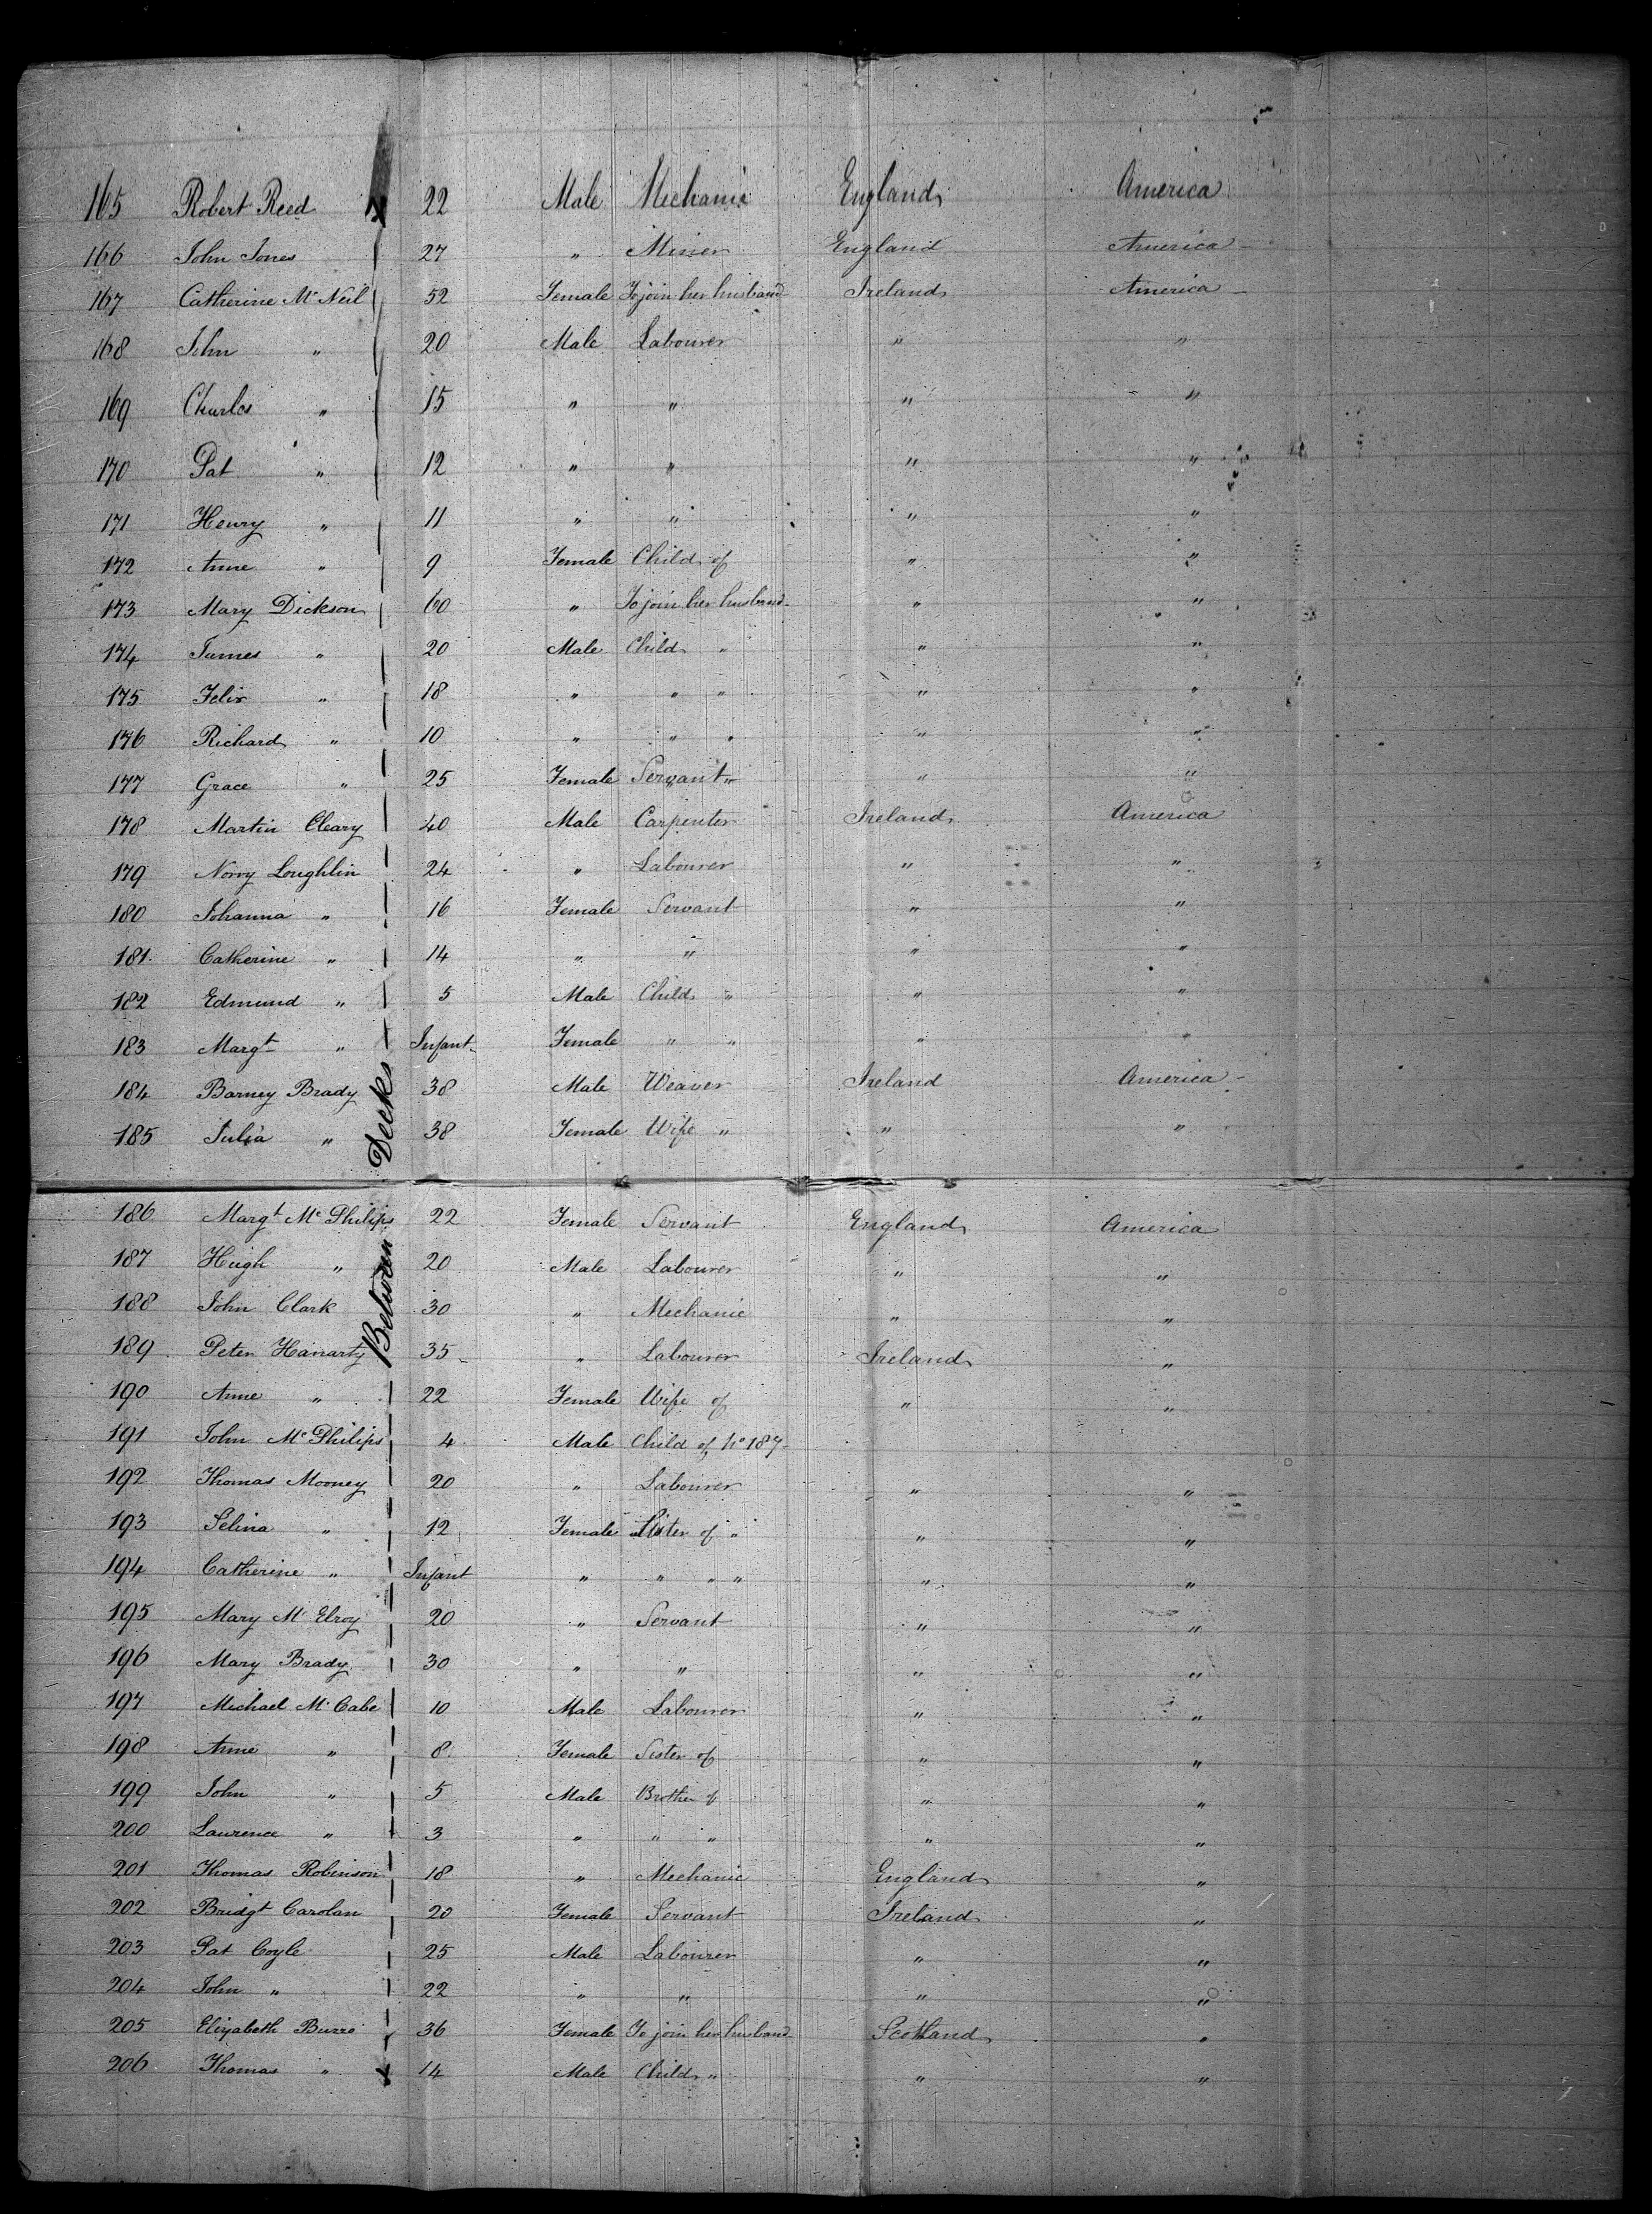 165 Robert Reed 22 Male Mechanic England America
166 John Jones 27 " Miner England America
167 Catherine Mc Neil 52 Female To join her husband Ireland America
168 John " 20 Male Labourer " "
169 Charles " 15 " " " "
170 Pat " 12 " " " "
171 Henry " 11 " " " "
172 Anne " 9 Female Child of " "
173 Mary Dickson 60 " To join her husband " "
174 James " 20 Male Child " " "
175 Felix " 18 " " " " "
176 Richard " 10 " " " " "
177 Grace " 25 Female Servant " " "
178 Martin Cleary 40 Male Carpenter Ireland America
179 Norry Loughlin 24 " Labourer " "
180 Johanna " 16 Female Servant " "
181 Catherine " 14 " " " "
182 Edmund " 5 Male Child " " "
183 Margt " Infant Female " " " "
184 Barney Brady 38 Male Weaver Ireland America
185 Julia " 38 Female Wife " " "
Between Decks
186 Margt Mc Philips 22 Female Servant England America
187 Hugh " 20 Male Labourer " "
188 John Clark 30 " Mechanic " "
189 Peter Hanarty 35 " Labourer Ireland "
190 Anne " 22 Female Wife of " "
191 John Mc Philips 4 Male Child of No 187
192 Thomas Mooney 20 " Labourer " "
193 Selina " 12 Female Sister of " " "
194 Catherine " Infant " " " " " "
195 Mary Mc Elroy 20 " Servant " "
196 Mary Brady 30 " " " "
197 Michael Mc Cabe 10 Male Labourer " "
198 Anne " 8 Female Sister of " "
199 John " 5 Male Brother of " "
200 Laurence " 3 " " " " "
201 Thomas Robinson 18 " Mechanic England "
202 Bridgt Carolan 20 Female Servant Ireland "
203 Pat Coyle 25 Male Labourer " "
204 John " 22 " " " "
205 Elizabeth Burre 36 Female To join her husband Scotland "
206 Thomas " 14 Male Child " " "